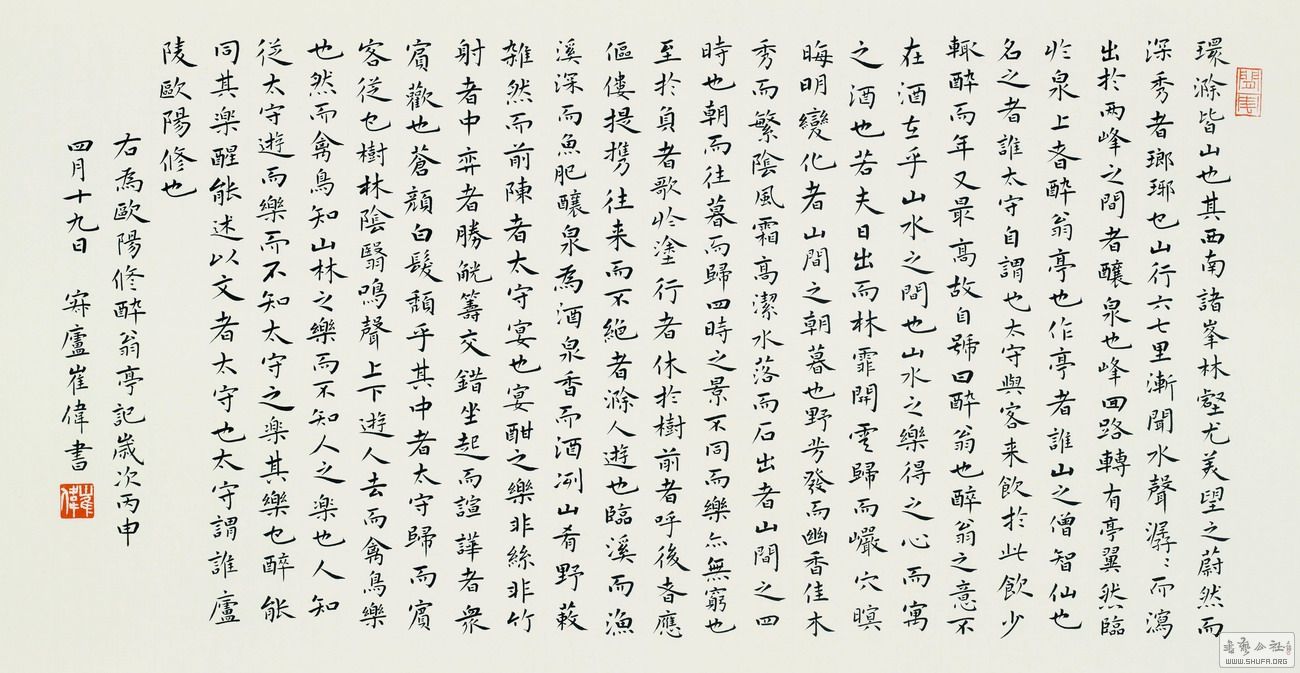 環滁皆山也其西南諸峯林壑尤美望之蔚然而
深秀者瑯琊也山行六七里漸聞水聲潺〻而瀉
出於两峰之間者釀泉也峰回路轉有亭翼然臨
於泉上者醉翁亭也作亭者誰山之僧智仙也
名之者誰太守自謂也太守與客来飲於此飲少
輒醉而年又最高故自號曰醉翁也醉翁之意不
在酒在乎山水之間也山水之樂得之心而寓
之酒也若夫日出而林霏開雲歸而巖穴暝
晦明變化者山間之朝暮也野芳發而幽香佳木
秀而繁陰風霜高潔水落而石出者山間之四
時也朝而往暮而歸四時之景不同而樂亦無窮也
至於負者歌於塗行者休於樹前者呼後者應
傴僂提携往来而不絕者滁人遊也臨溪而漁
溪深而魚肥釀泉為酒泉香而酒洌山肴野蔌
雜然而前陳者太守宴也宴酣之樂非絲非竹
射者中弈者勝觥籌交錯坐起而諠譁者衆
賓歡也蒼顏白髮頹乎其中者太守歸而賓
客從也樹林陰翳鳴聲上下遊人去而禽鳥樂
也然而禽鳥知山林之樂而不知人之楽也人知
從太守遊而樂而不知太守之楽其樂也醉能
同其楽醒能述以文者太守也太守謂誰廬
陵歐陽修也
右為歐陽修醉翁亭記歲次丙申
四月十九日 寐廬崔偉書
崔偉
書藝公社
WWW.SHUFA.ORG